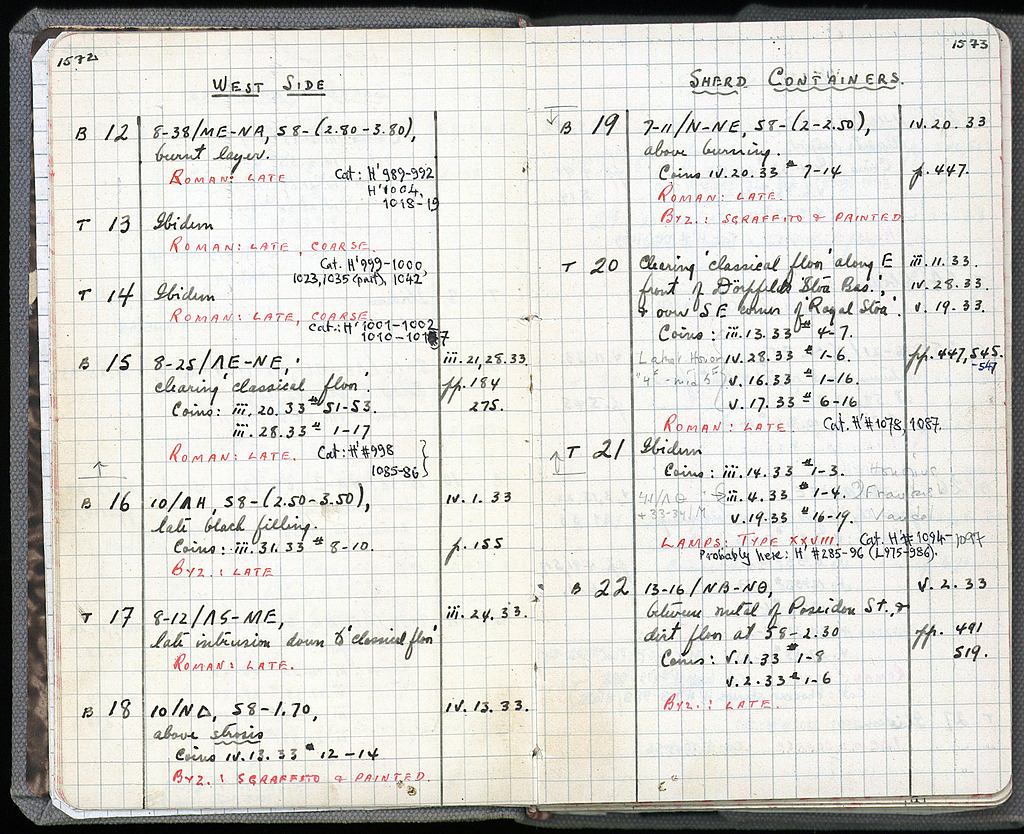 1572
WEST SIDE
B 12 8-38/ME-NA, 58-(2.80-3.80),
burnt layer.
ROMAN: LATE Cat: H'989-992
H'1004,
1018-19
T 13 Ibidem
ROMAN: LATE, COARSE.
Cat. H'999-1000,
1023, 1035 (part), 1042
T 14 Ibidem
ROMAN: LATE, COARSE.
Cat.: H'1001-1002
B 15 8-25/ΛE-NE, iii.21,28.33
clearing 'classical floor'. pp. 184
Coins: iii.20.33 # 51-53. 275.
iii.28.33 # 1-17
ROMAN: LATE. Cat: H'#998
1085-86
B 16 10/ΛH, 58-(2.50-3.50), iv.1.33
late black filling.
Coins: iii.31.33 # 8-10. p.155
BYZ.: LATE
T 17 8-12/ΛS-ME, iii.24.33.
late intrusion down to 'classical floor'
ROMAN: LATE.
B 18 10/NΔ, 58-1.70, iv.13.33.
above strosis
Coins iv.13.33 # 12-14
BYZ.: SGRAFFITO & PAINTED.
1573
SHERD CONTAINERS.
B 19 7-11/N-NE, 58-(2-2.50), iv.20.33
above burning.
Coins iv.20.33 # 7-14 p.447.
ROMAN: LATE.
BYZ.: SGRAFFITO & PAINTED
T 20 Clearing 'classical floor' along E iii.11.33.
front of Dörpfeld's 'Stoa Bas.', iv.28.33.
& over SE corner of 'Royal Stoa'. v.19.33.
Coins: iii.13.33 # 4-7.
iv.28.33 # 1-6. pp.447,545.
-547
v.16.33 # 1-16.
v.17.33 # 6-16
ROMAN: LATE. Cat. H'#1078, 1087.
T 21 Ibidem
Coins: iii.14.33 # 1-3.
41/ΛΘ iii.4.33 # 1-4.
+33-34/M v.19.33 # 16-19.
LAMPS: TYPE XXVIII. Cat. H'#1094-1097
Probably here: H' #285-96 (L975-986).
B 22 13-16/NB-NΘ, v.2.33
between metal of Poseidon St., &
dirt floor at 58-2.30 pp. 491
Coins: v.1.33 # 1-8 519.
v.2.33 # 1-6
BYZ.: LATE.